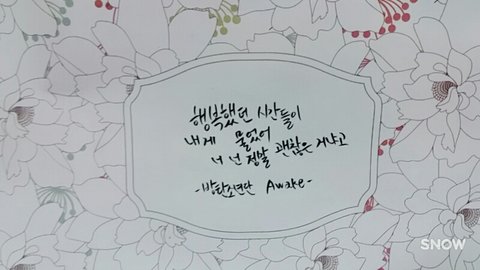 행복했던 시간들이
내게 물었어
너 넌 정말 괜찮은 거냐고
-방탄소년단 Awake-
SNOW